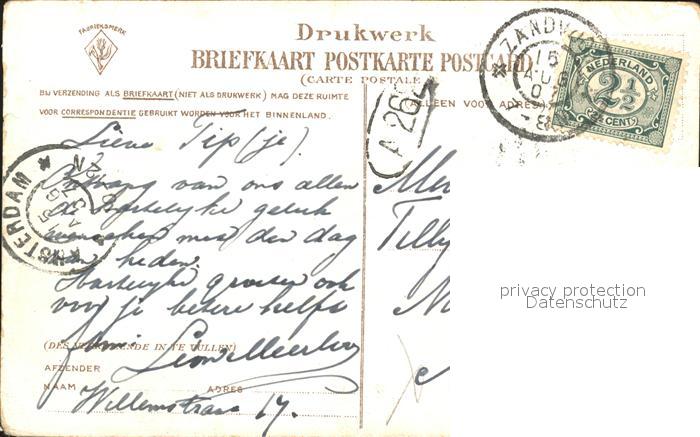 FABRIEKSMERK
Drukwerk
BRIEFKAART POSTKARTE POSTCARD
(CARTE POSTALE
BIJ VERZENDING ALS BRIEFKAART (NIET ALS DRUKWERK) MAG DEZE RUIMTE
VOOR CORRESPONDENTIE GEBRUIKT WORDEN VOOR HET BINNENLAND.
(ALLEEN VOOR ADRES)
ZANDV
15
AUG
07
NEDERLAND
2½
(2½ CENT)
A 26
AMSTERDAM
Lieve Tip(je).
Ontvang van ons allen
de hartelijke geluk
wenschen met den dag
van heden.
Hartelijke groeten ook
voor je betere helft
(DES VERKIEZENDE IN TE VULLEN)
AFZENDER
NAAM ADRES
17.
Tilly
privacy protection
Datenschutz